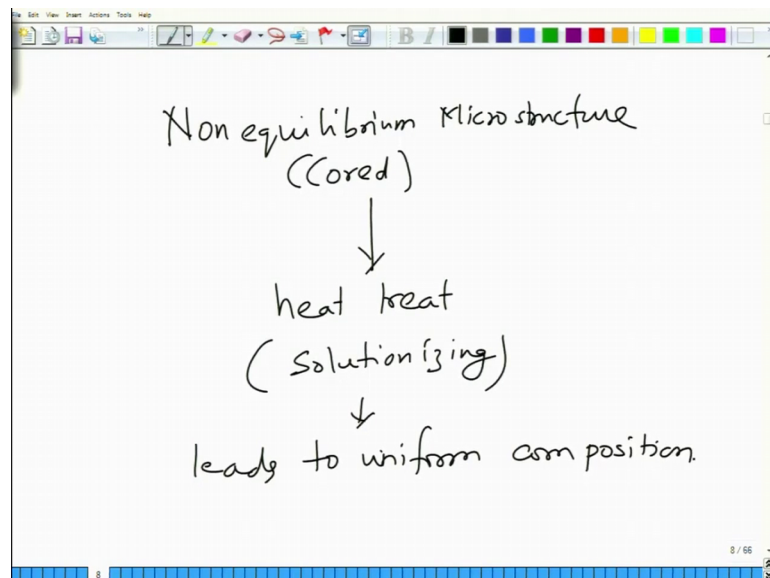 File Edit View Insert Actions Tools Help
B I
Non equilibrium Microstructure
(Cored)
heat treat
(Solutionizing)
leads to uniform composition.
8 / 66
8